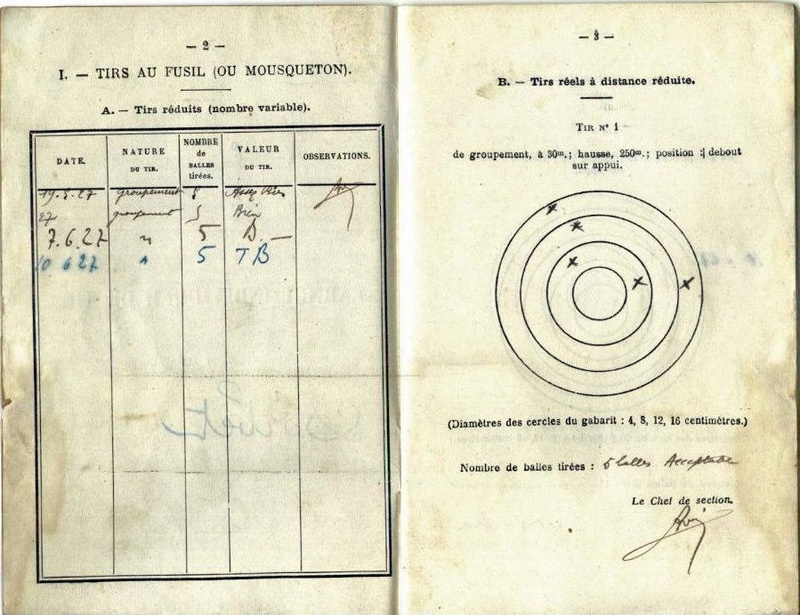 — 2 —
I. — TIRS AU FUSIL (OU MOUSQUETON).
A. — Tirs réduits (nombre variable).
DATE. NATURE DU TIR. NOMBRE de BALLES tirées. VALEUR DU TIR. OBSERVATIONS.
19.5.27 groupement 8 Assez Bien
27 groupement 5 Bien
7.6.27 " 5 B. —
10 6 27 " 5 TB
— 3 —
B. — Tirs réels à distance réduite.
TIR N° 1
de groupement, à 30m.; hausse, 250m.; position : debout
sur appui.
(Diamètres des cercles du gabarit : 4, 8, 12, 16 centimètres.)
Nombre de balles tirées : 5 balles Acceptable
Le Chef de section.